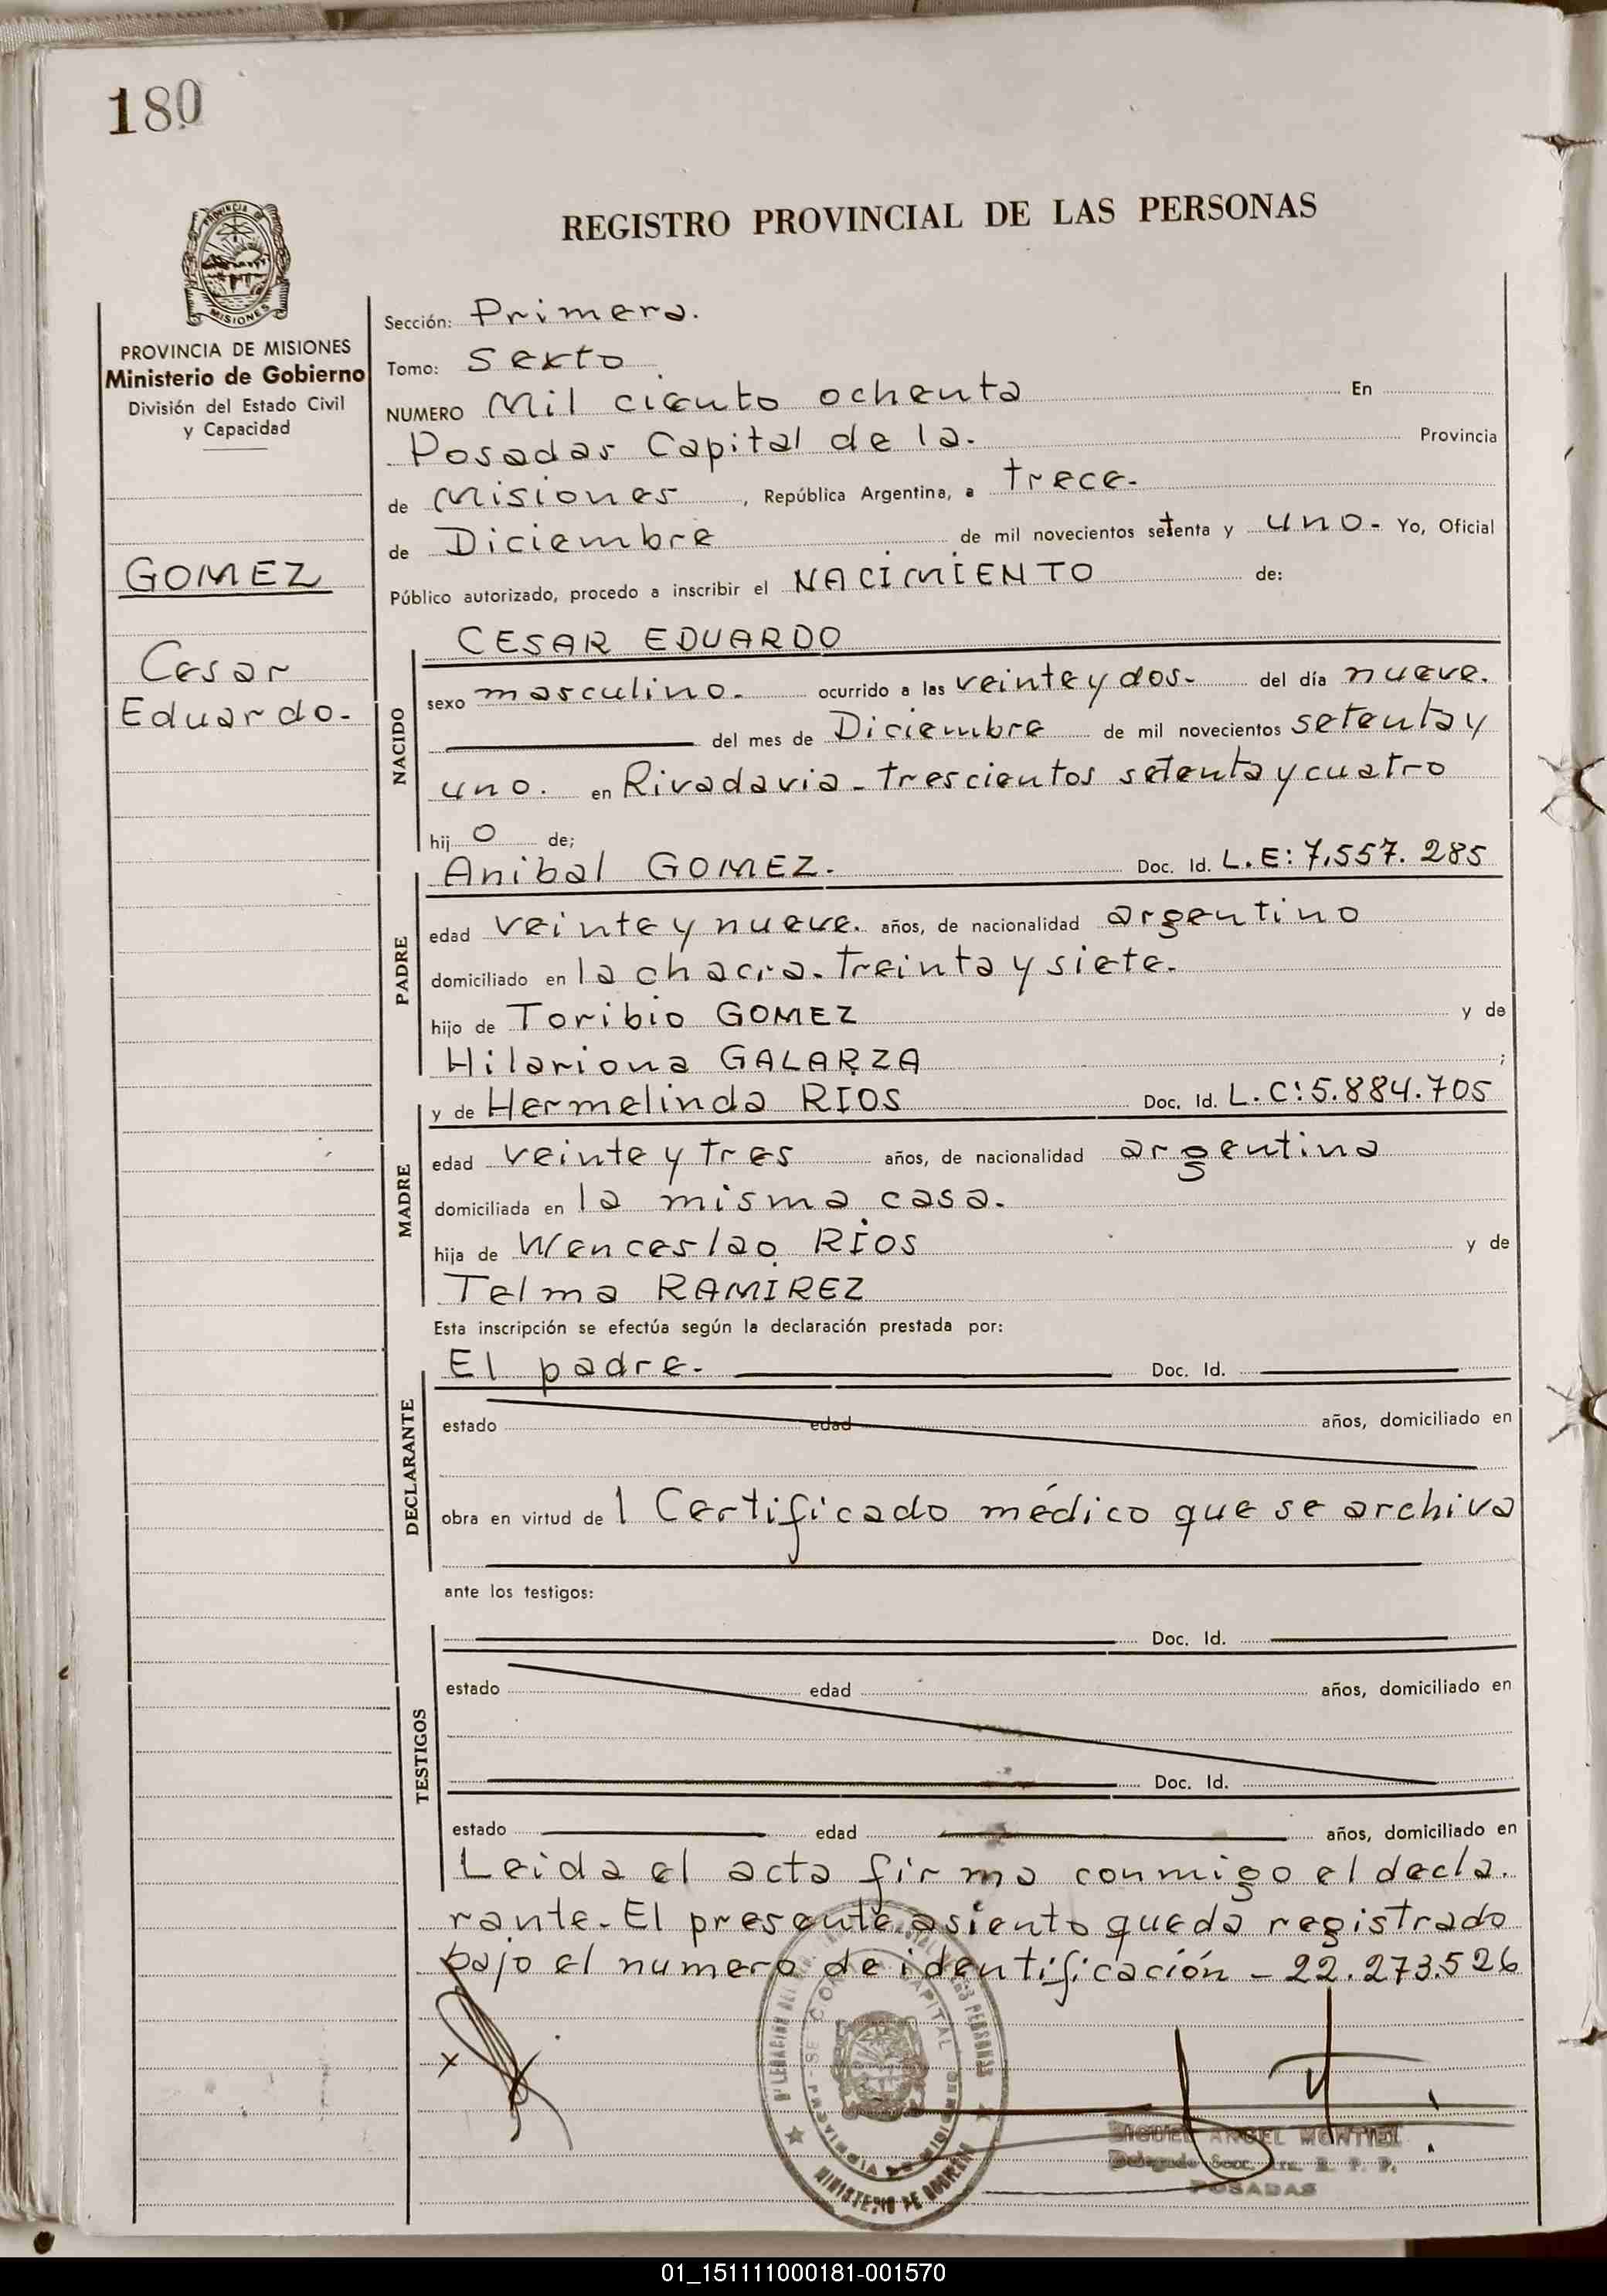 180
REGISTRO PROVINCIAL DE LAS PERSONAS
PROVINCIA DE MISIONES
Ministerio de Gobierno
División del Estado Civil
y Capacidad
GOMEZ
Cesar
Eduardo.-
Sección: Primera.
Tomo: Sexto
NUMERO Mil ciento ochenta En
Posadas Capital de la. Provincia
de Misiones, República Argentina, a trece.
de Diciembre de mil novecientos setenta y uno.- Yo, Oficial
Público autorizado, procedo a inscribir el NACIMIENTO de:
NACIDO
CESAR EDUARDO
sexo masculino.- ocurrido a las veinte y dos.- del día nueve.
del mes de Diciembre de mil novecientos setenta y
uno. en Rivadavia - trescientos setenta y cuatro
hij o de;
PADRE
Anibal GOMEZ. Doc. Id. L.E: 7.557.285
edad veinte y nueve. años, de nacionalidad argentino
domiciliado en la chacra. treinta y siete.
hijo de Toribio GOMEZ y de
Hilariona GALARZA ;
MADRE
y de Hermelinda RIOS Doc. Id. L.C: 5.884.705
edad veinte y tres años, de nacionalidad argentina
domiciliada en la misma casa.
hija de Wenceslao RIOS y de
Telma RAMIREZ
Esta inscripción se efectúa según la declaración prestada por:
DECLARANTE
El padre.- Doc. Id.
estado edad años, domiciliado en
obra en virtud de 1 Certificado médico que se archiva
ante los testigos:
TESTIGOS
Doc. Id.
estado edad años, domiciliado en
Doc. Id.
estado edad años, domiciliado en
Leida el acta firma conmigo el decla.
rante. El presente asiento queda registrado
bajo el numero de identificación - 22.273.526
MIGUEL ANGEL MONTIEL
Delegado Secc. 1ra. R. P. P.
POSADAS
MINISTERIO DE GOBIERNO
01_151111000181-001570